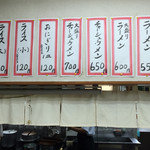 ラーメン
550
大盛り
ラーメン
600
チャーシューメン
650
大盛り
チャーシューメン
700
おにぎり
120
ライス(小)
120
ライス